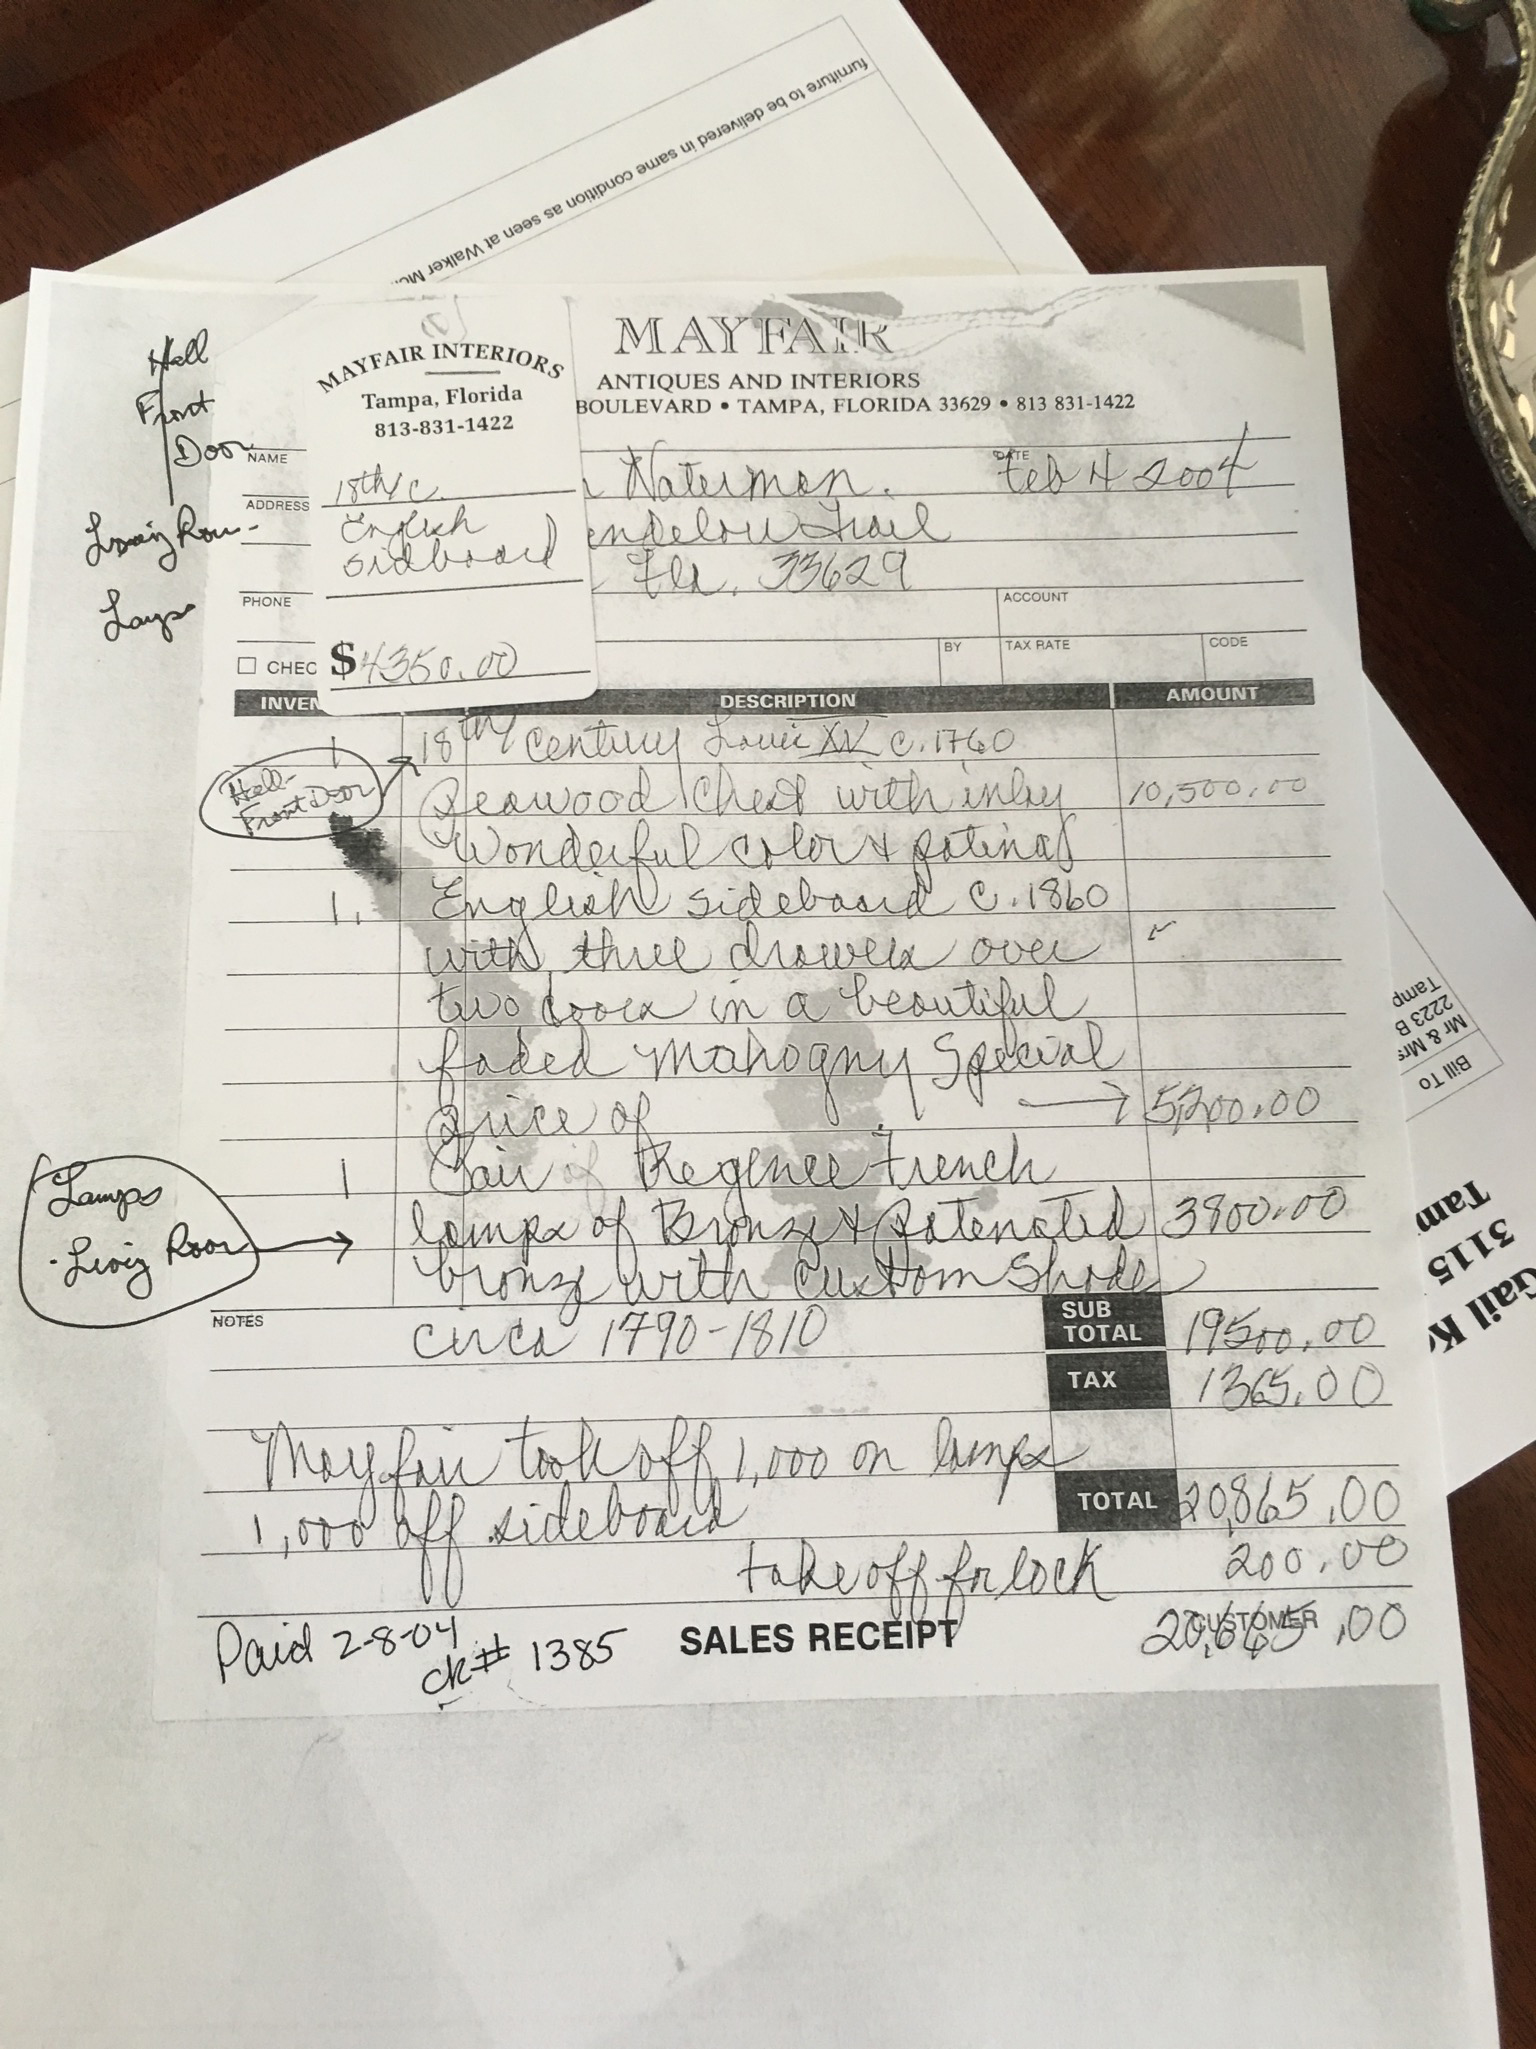 furniture to be delivered in same condition as seen at Walker
Hall
Front
Door
Lamps
MAYFAIR INTERIORS
Tampa, Florida
813-831-1422
18th/c.
English
sidboard
$4350.00
MAYFAIR
ANTIQUES AND INTERIORS
BOULEVARD • TAMPA, FLORIDA 33629 • 813 831-1422
NAME Waterman. DATE Feb 4 2004
ADDRESS Trail
Fla. 33629
PHONE ACCOUNT
CHEC BY TAX RATE CODE
INVEN DESCRIPTION AMOUNT
1 18th Century Louis XV c.1760
Hall-
Front Door
Chest with inlay 10,500.00
Wonderful color & patina
1. English sideboard c.1860
with three drawers over
two doors in a beautiful
faded Mahogny Special
price of → 5,200.00
1 Pair of Regence French
Lamps
- Living Room
lamps of Bronze & Patenated 3800.00
bronze with custom Shade
NOTES circa 1790-1810
SUB TOTAL 19500.00
TAX 1365.00
Mayfair took off 1,000 on lamps
TOTAL 20,865.00
1,000 off sideboard
take off for lock 200.00
SALES RECEIPT CUSTOMER 20,665.00
Paid 2-8-04
ck# 1385
Bill To
Mr & Mrs
2223 B
Tamp
Gail K
3115
Tam